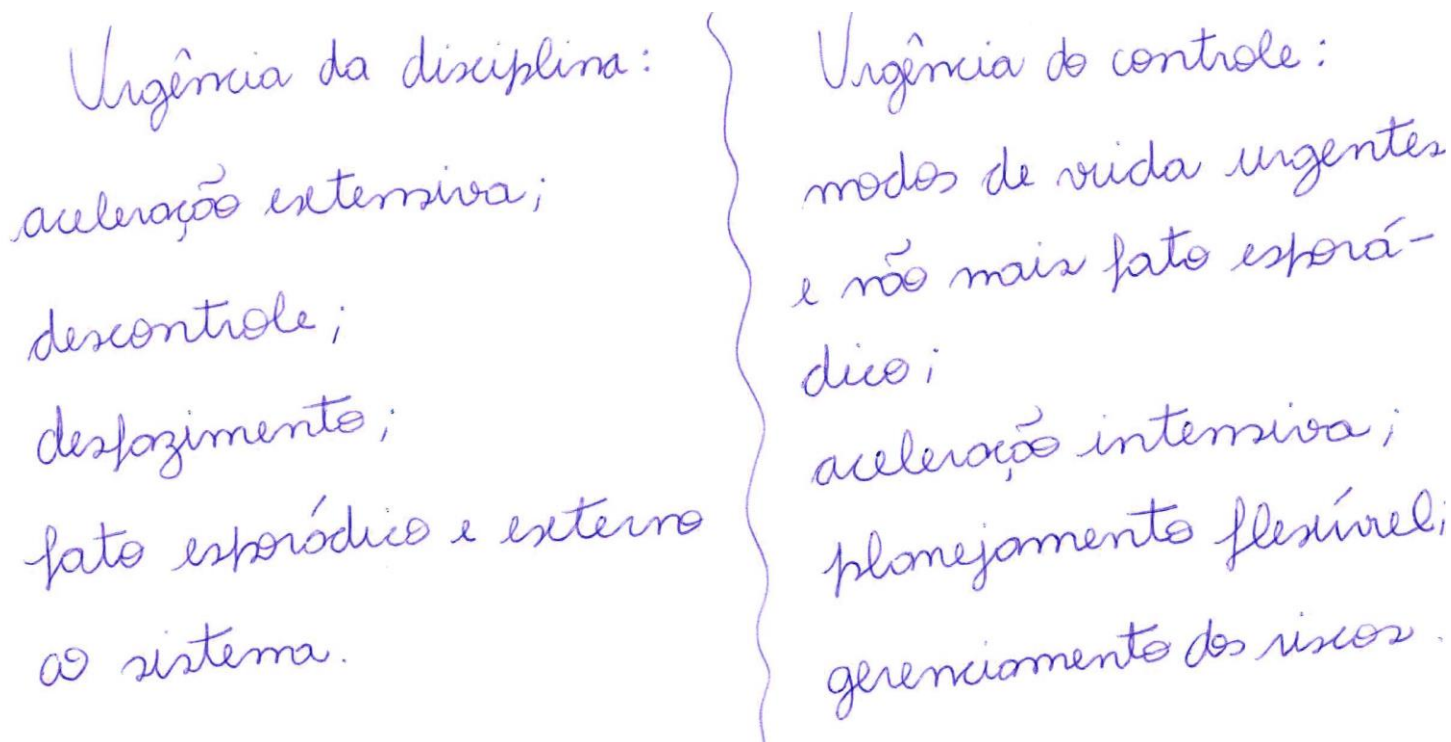 Urgência da disciplina:
aceleração extensiva;
descontrole;
desfazimento;
fato esporádico e externo
ao sistema.
Urgência do controle:
modos de vida urgentes
e não mais fato esporá-
dico;
aceleração intensiva;
planejamento flexível;
gerenciamento dos riscos.